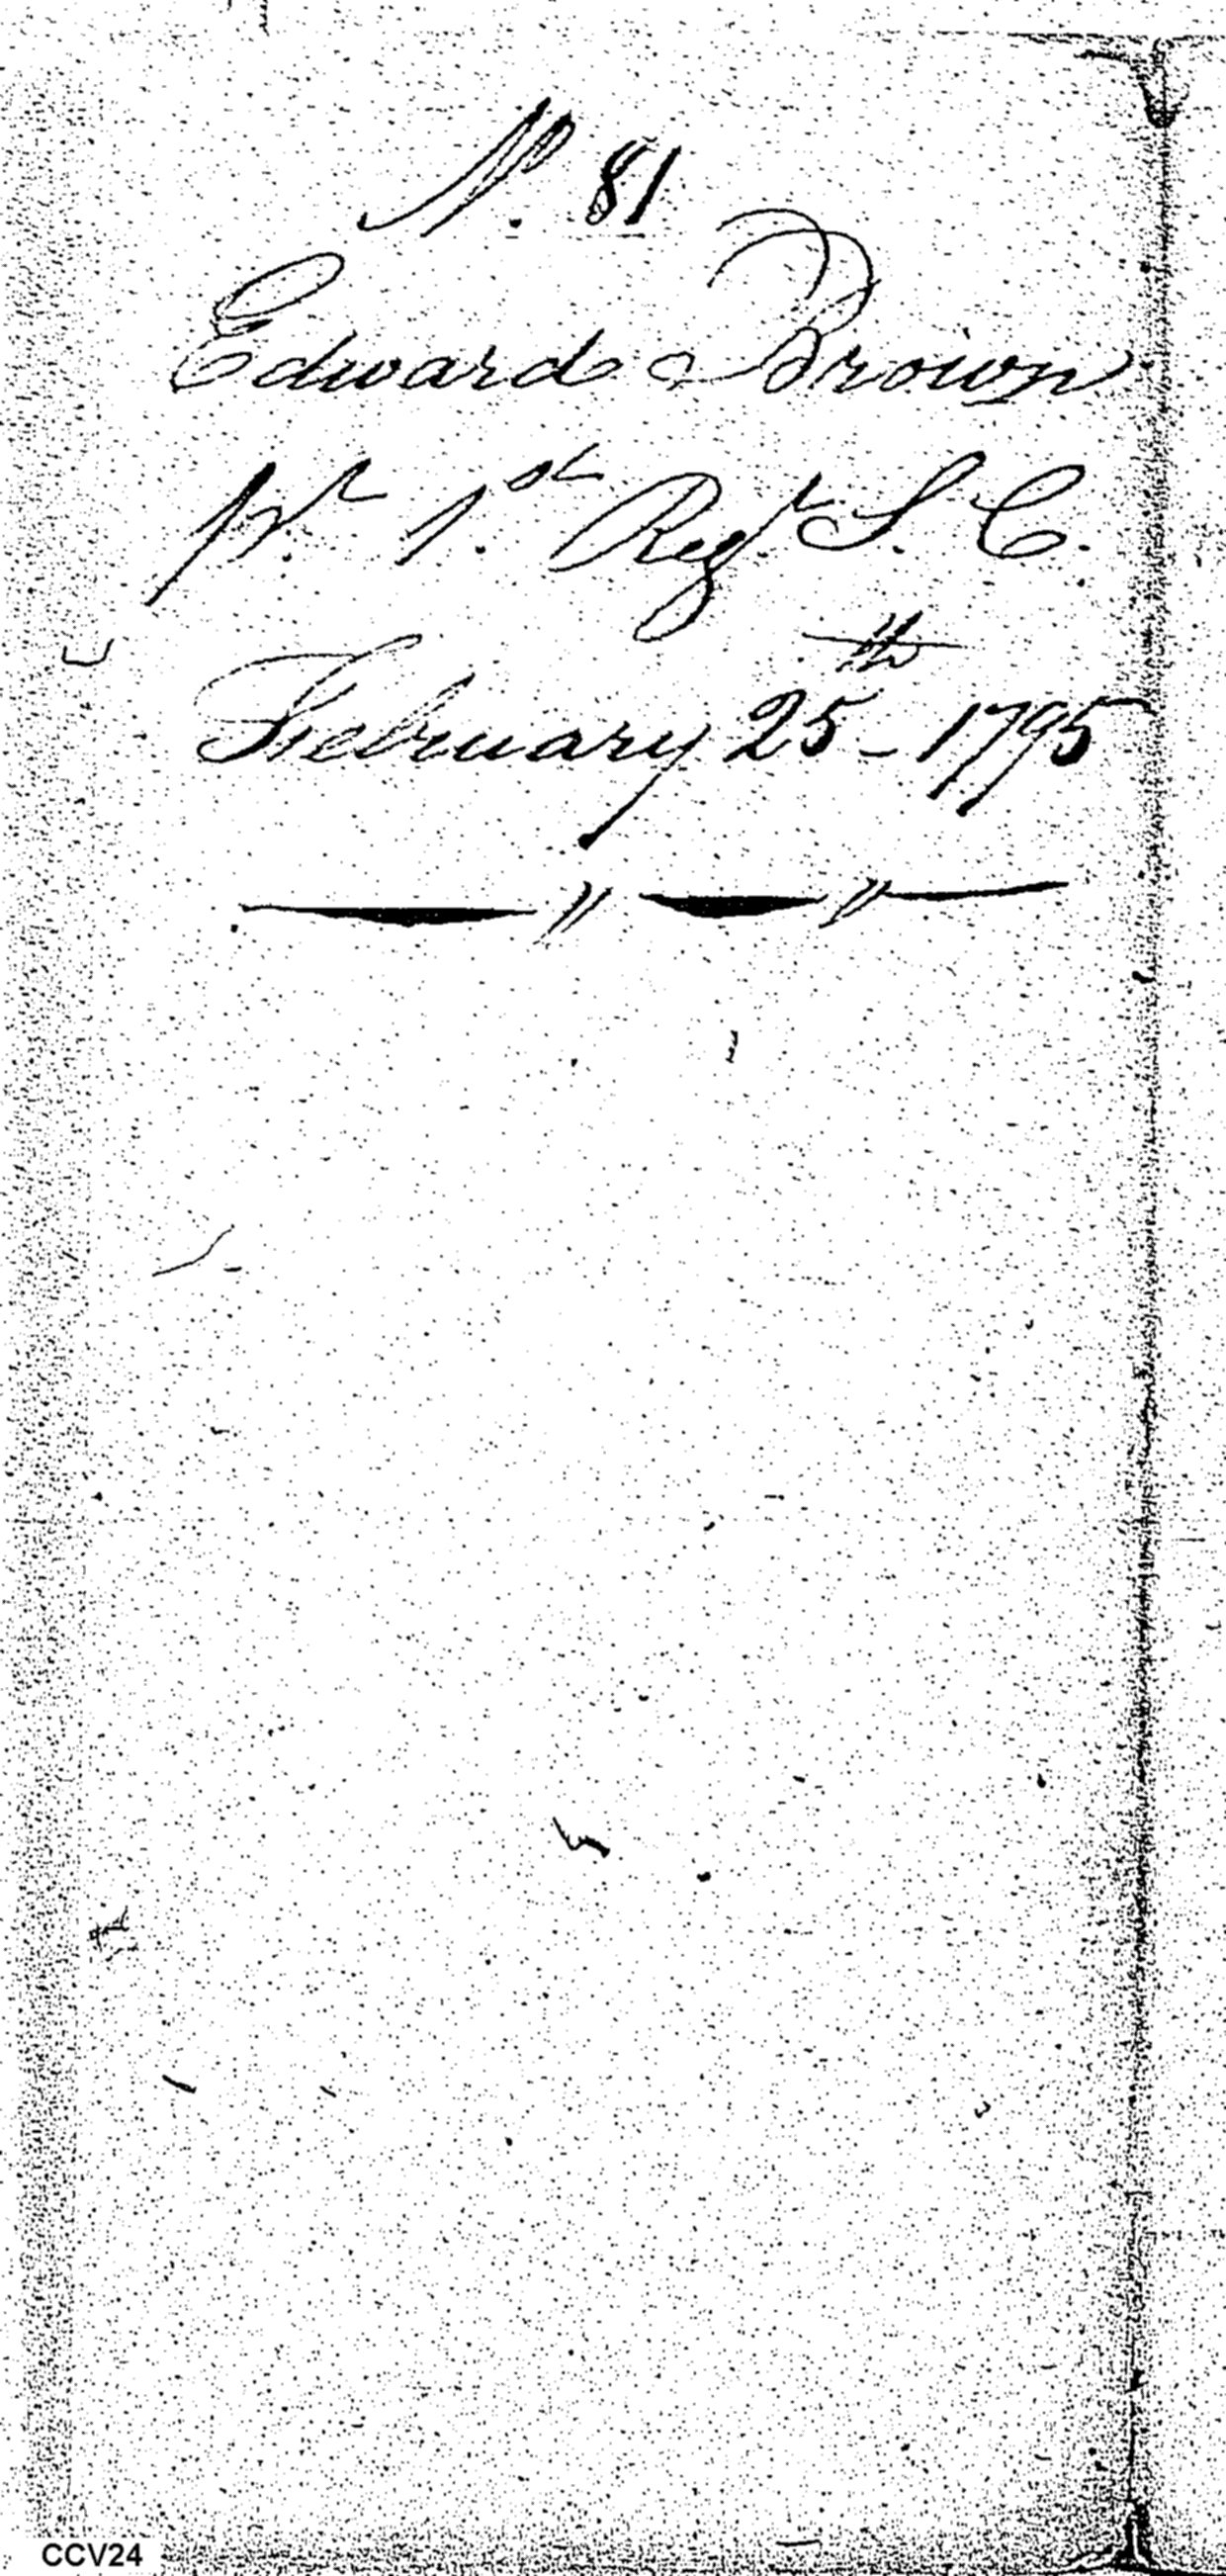 N. 81
Edward Brown
pt. 1.st Regt. S. C.
February 25th - 1795
CCV24